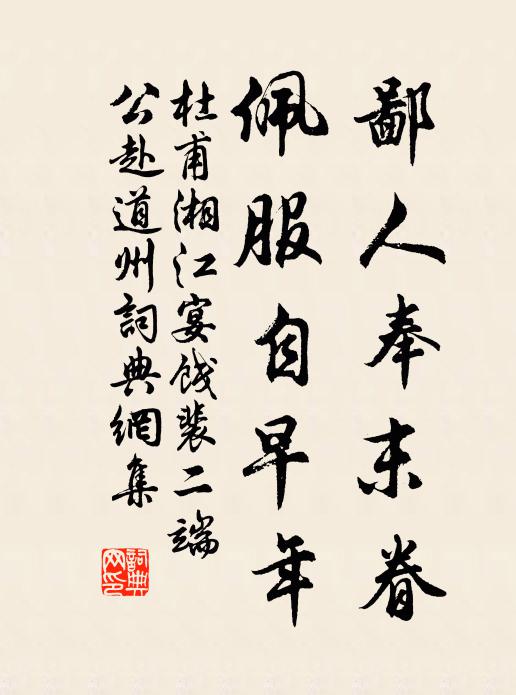 鄙人奉末眷
佩服自早年
杜甫湘江宴餞裴二端
公赴道州詞典網集
詞典
网印